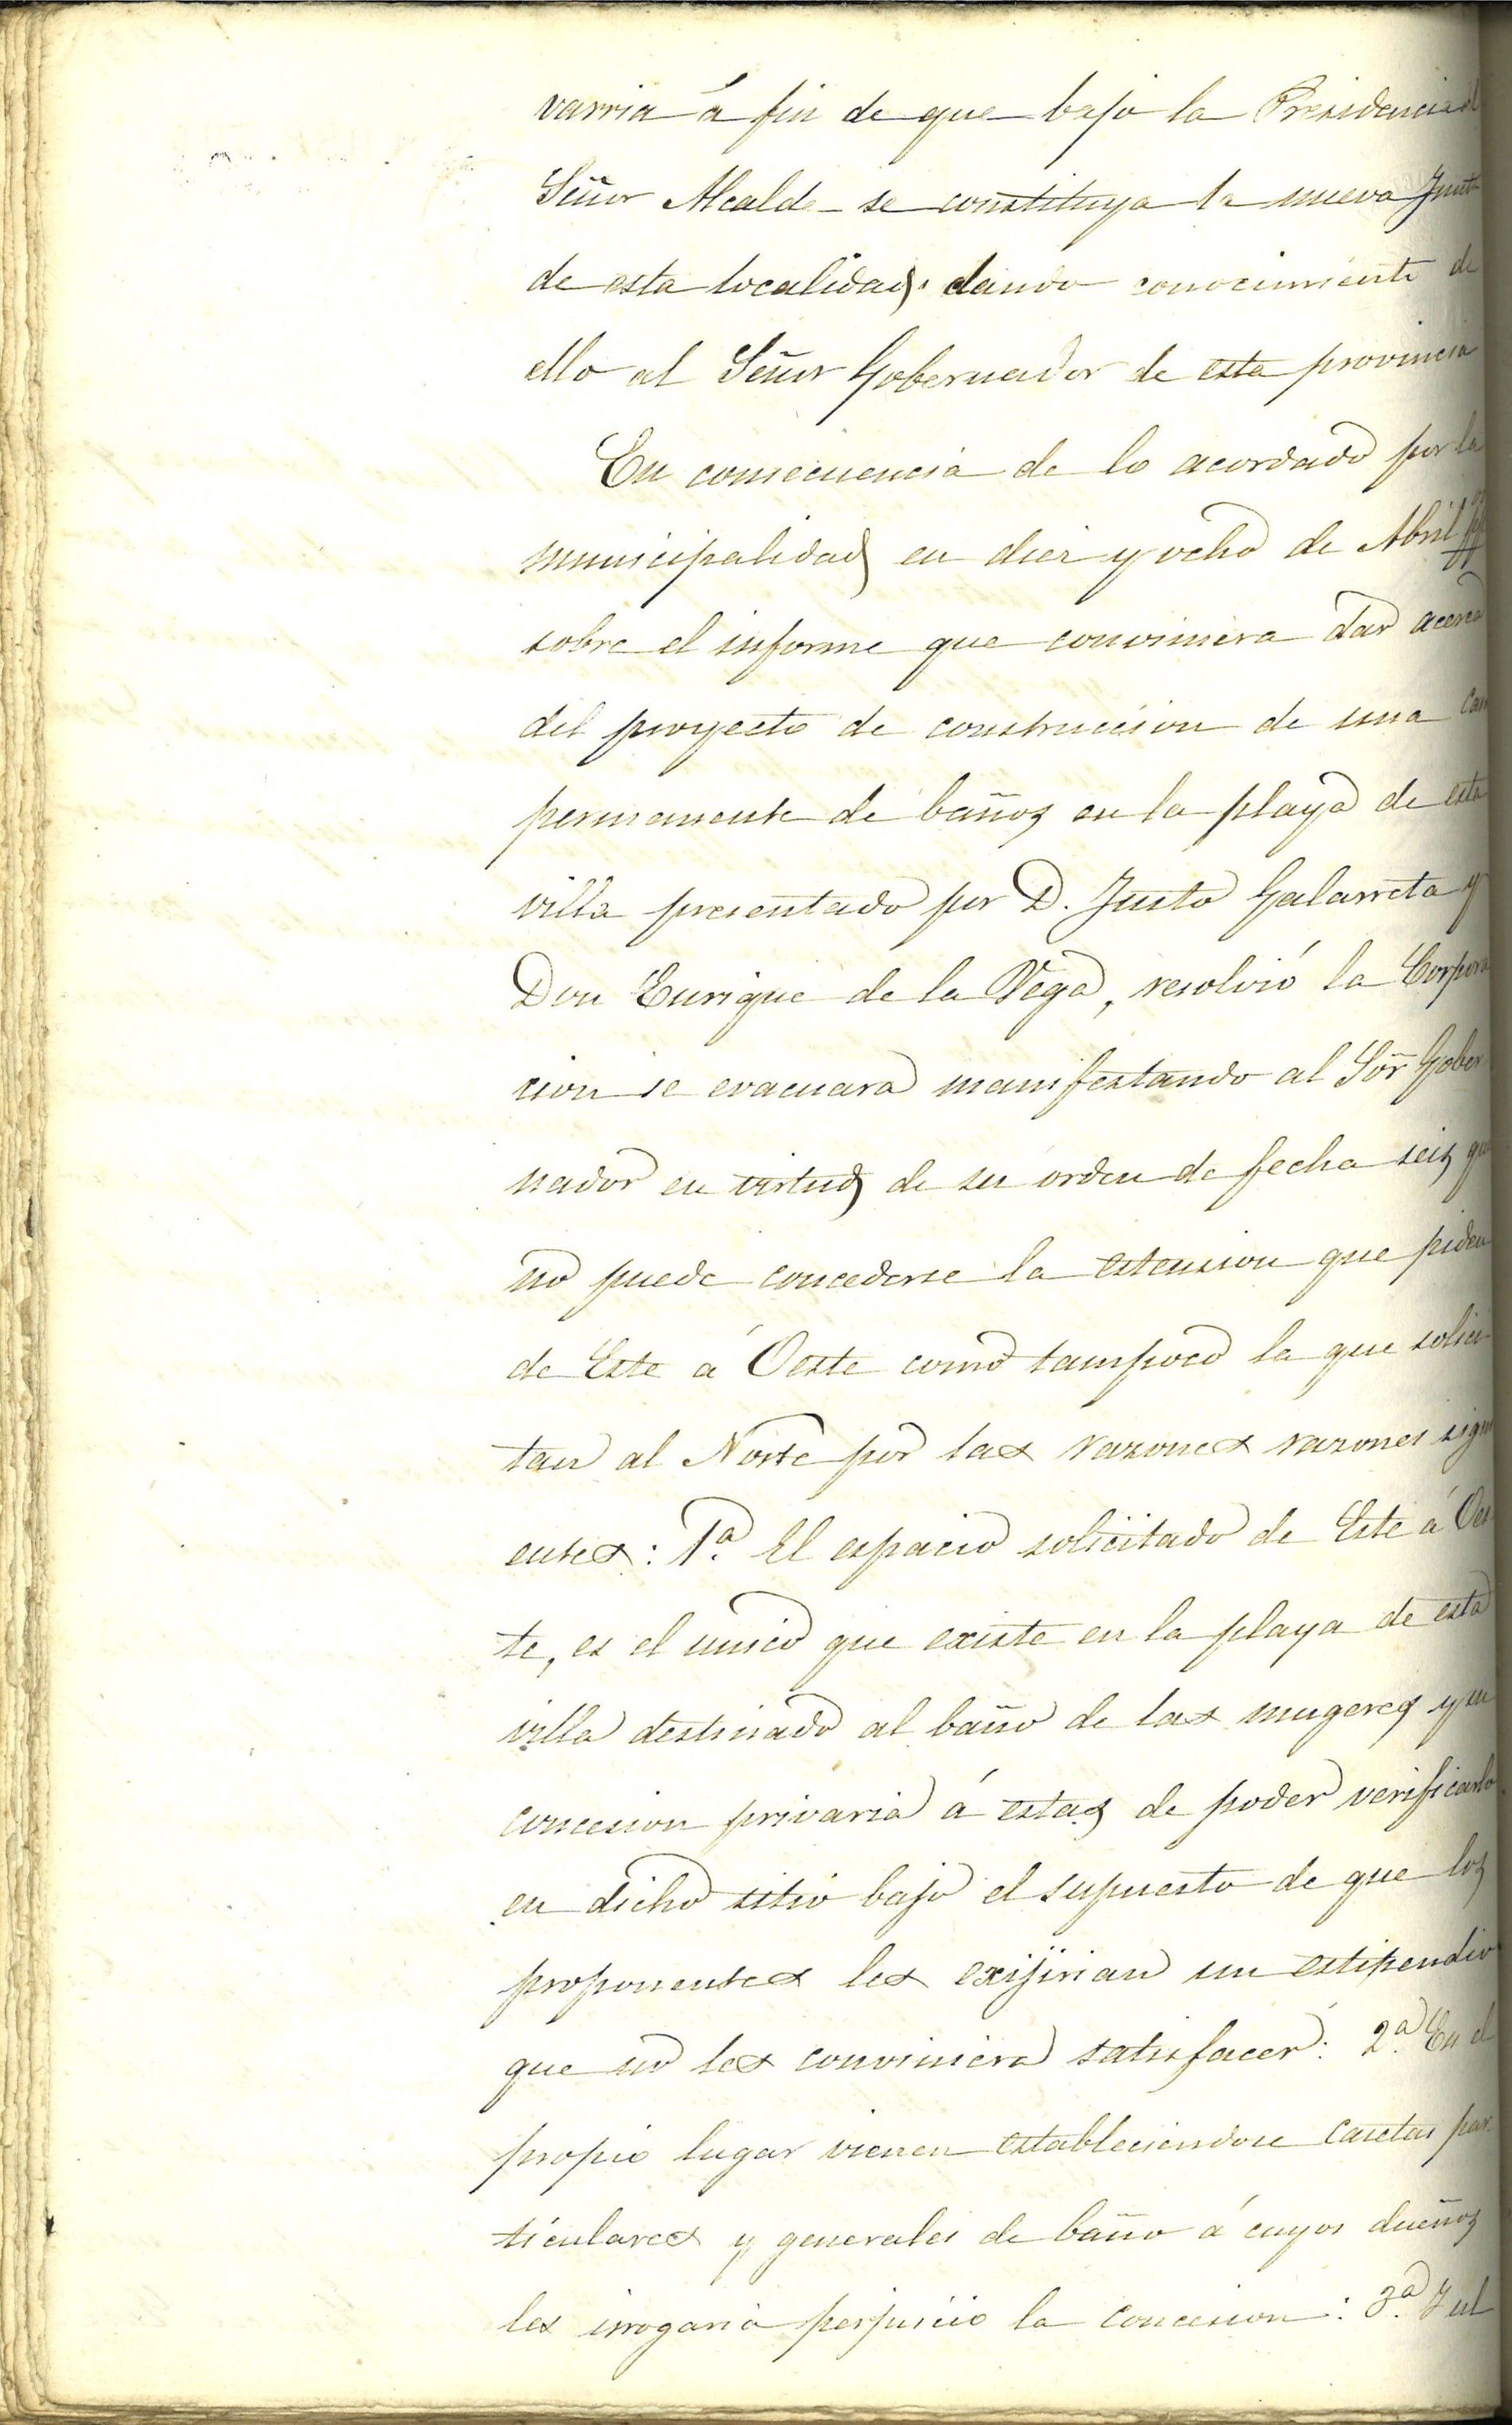 varria á fin de que bajo la Presidencia del
Señor Alcalde se constituya la nueva Junta
de esta localidad, dando conocimiento de
ello al Señor Gobernador de esta provincia
En consecuencia de lo acordado por la
municipalidad en diez y ocho de Abril
sobre el informe que conviniera dar acerca
del proyecto de construccion de una Casa
permanente de baños en la playa de esta
villa presentado por D. Justo Galarreta y
Don Enrique de la Vega, resolvió la Corpora
cion se evacuara manifestando al Sór Gober
nador en virtud de su orden de fecha seis que
no puede concederse la estension que piden
de Este á Oeste como tampoco la que solici
tan al Norte por las razones razones sigui
entes: 1.ª El espacio solicitado de Este á Oes
te, es el unico que existe en la playa de esta
villa destinado al baño de las mugeres y su
concesion privaria á estas de poder verificarlo
en dicho sitio bajo el supuesto de que los
proponentes les exijirian un estipendio
que no les conviniera satisfacer: 2.ª En el
propio lugar vienen estableciendose casetas par
ticulares y generales de baño á cuyos dueños
les irrogaria perjuicio la concesion: 3.ª